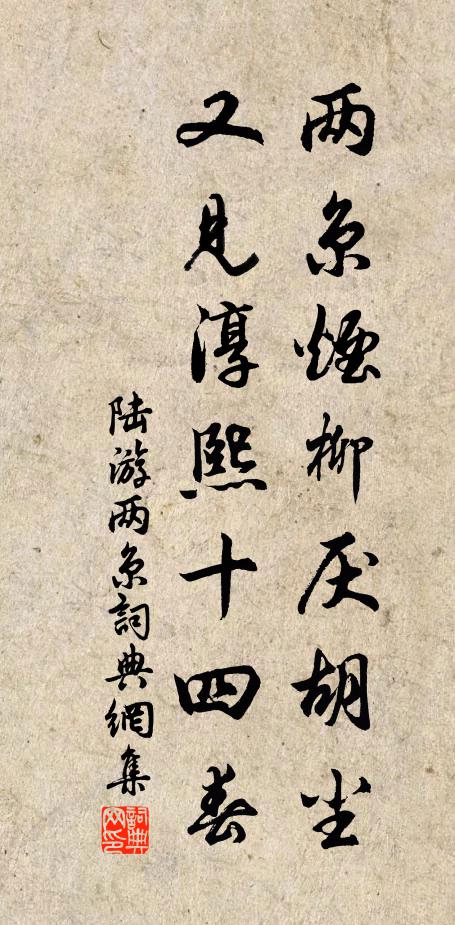 两京煙柳厌胡尘
又見淳熙十四春
陆游两京詞典網集
詞典網印